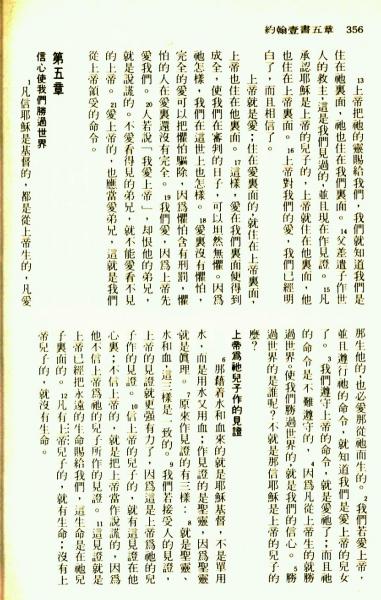 約翰壹書五章 356
13上帝把祂的靈賜給我們，我們就知道我們是
住在祂裏面，祂也住在我們裏面。14父差遣子作世
人的救主；這是我們見過的，並且現在作見證。15凡
承認耶穌是上帝的兒子的，上帝就住在他裏面，他
也住在上帝裏面。16上帝對我們的愛，我們已經明
白了，而且相信了。
上帝就是愛；住在愛裏面的，就住在上帝裏面，
上帝也住在他裏面。17這樣，愛在我們裏面使得到
成全，使我們在審判的日子，可以坦然無懼。因爲
祂怎樣，我們在這世上也怎樣。18愛裏沒有懼怕，
完全的愛可以把懼怕驅除，因爲懼怕含有刑罰，懼
怕的人在愛裏還沒有完全。19我們愛，因爲上帝先
愛我們。20人若說「我愛上帝」，却恨他的弟兄，
就是說謊的。不愛看得見的弟兄，就不能愛看不見
的上帝。21愛上帝的，也應當愛弟兄，這就是我們
從上帝領受的命令。
第五章
信心使我們勝過世界
1凡信耶穌是基督的，都是從上帝生的，凡愛
那生他的，也必愛那從祂而生的。2我們若愛上帝，
並且遵行祂的命令，就知道我們是愛上帝的兒女
了。3我們遵守上帝的命令，就是愛祂了；而且祂
的命令是不難遵守的，4因爲凡從上帝生的就勝
過世界。使我們勝過世界的，就是我們的信心。5勝
過世界的是誰呢？不就是那信耶穌是上帝的兒子的
麼？
上帝爲祂兒子作的見證
6那藉着水和血來的就是耶穌基督，不是單用
水，而是用水又用血；作見證的是聖靈，因爲聖靈
就是眞理。7原來作見證的有三樣：8就是聖靈、
水和血，這三樣是一致的。9我們若接受人的見證，
上帝的見證就更強有力了，因爲這是上帝爲祂的兒
子作的見證。10信上帝的兒子的，就有這見證在他
心裏；不信上帝的，就是把上帝當作說謊的，因爲
他不信上帝爲祂的兒子所作的見證。11這見證就是
上帝已經把永遠的生命賜給我們，這生命是在祂兒
子裏面的。12凡有上帝兒子的，就有生命；沒有上
帝兒子的，就沒有生命。